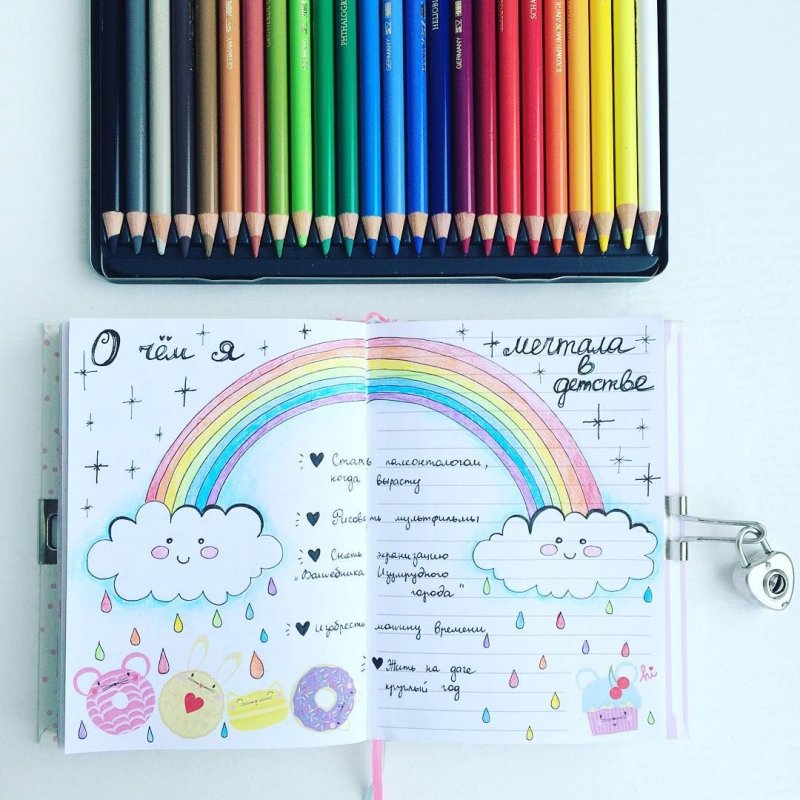 GERMANY
PHTHALOGR
GERMANY
HELIOBL
GERMANY
KADMIUMORANGE
О чём я
мечтала
в
детстве
Стать палеонтологом,
когда вырасту
Рисовать мультфильмы
Снять экранизацию
"Волшебника Изумрудного
города"
Изобрести машину времени
Жить на даче
круглый год
hi